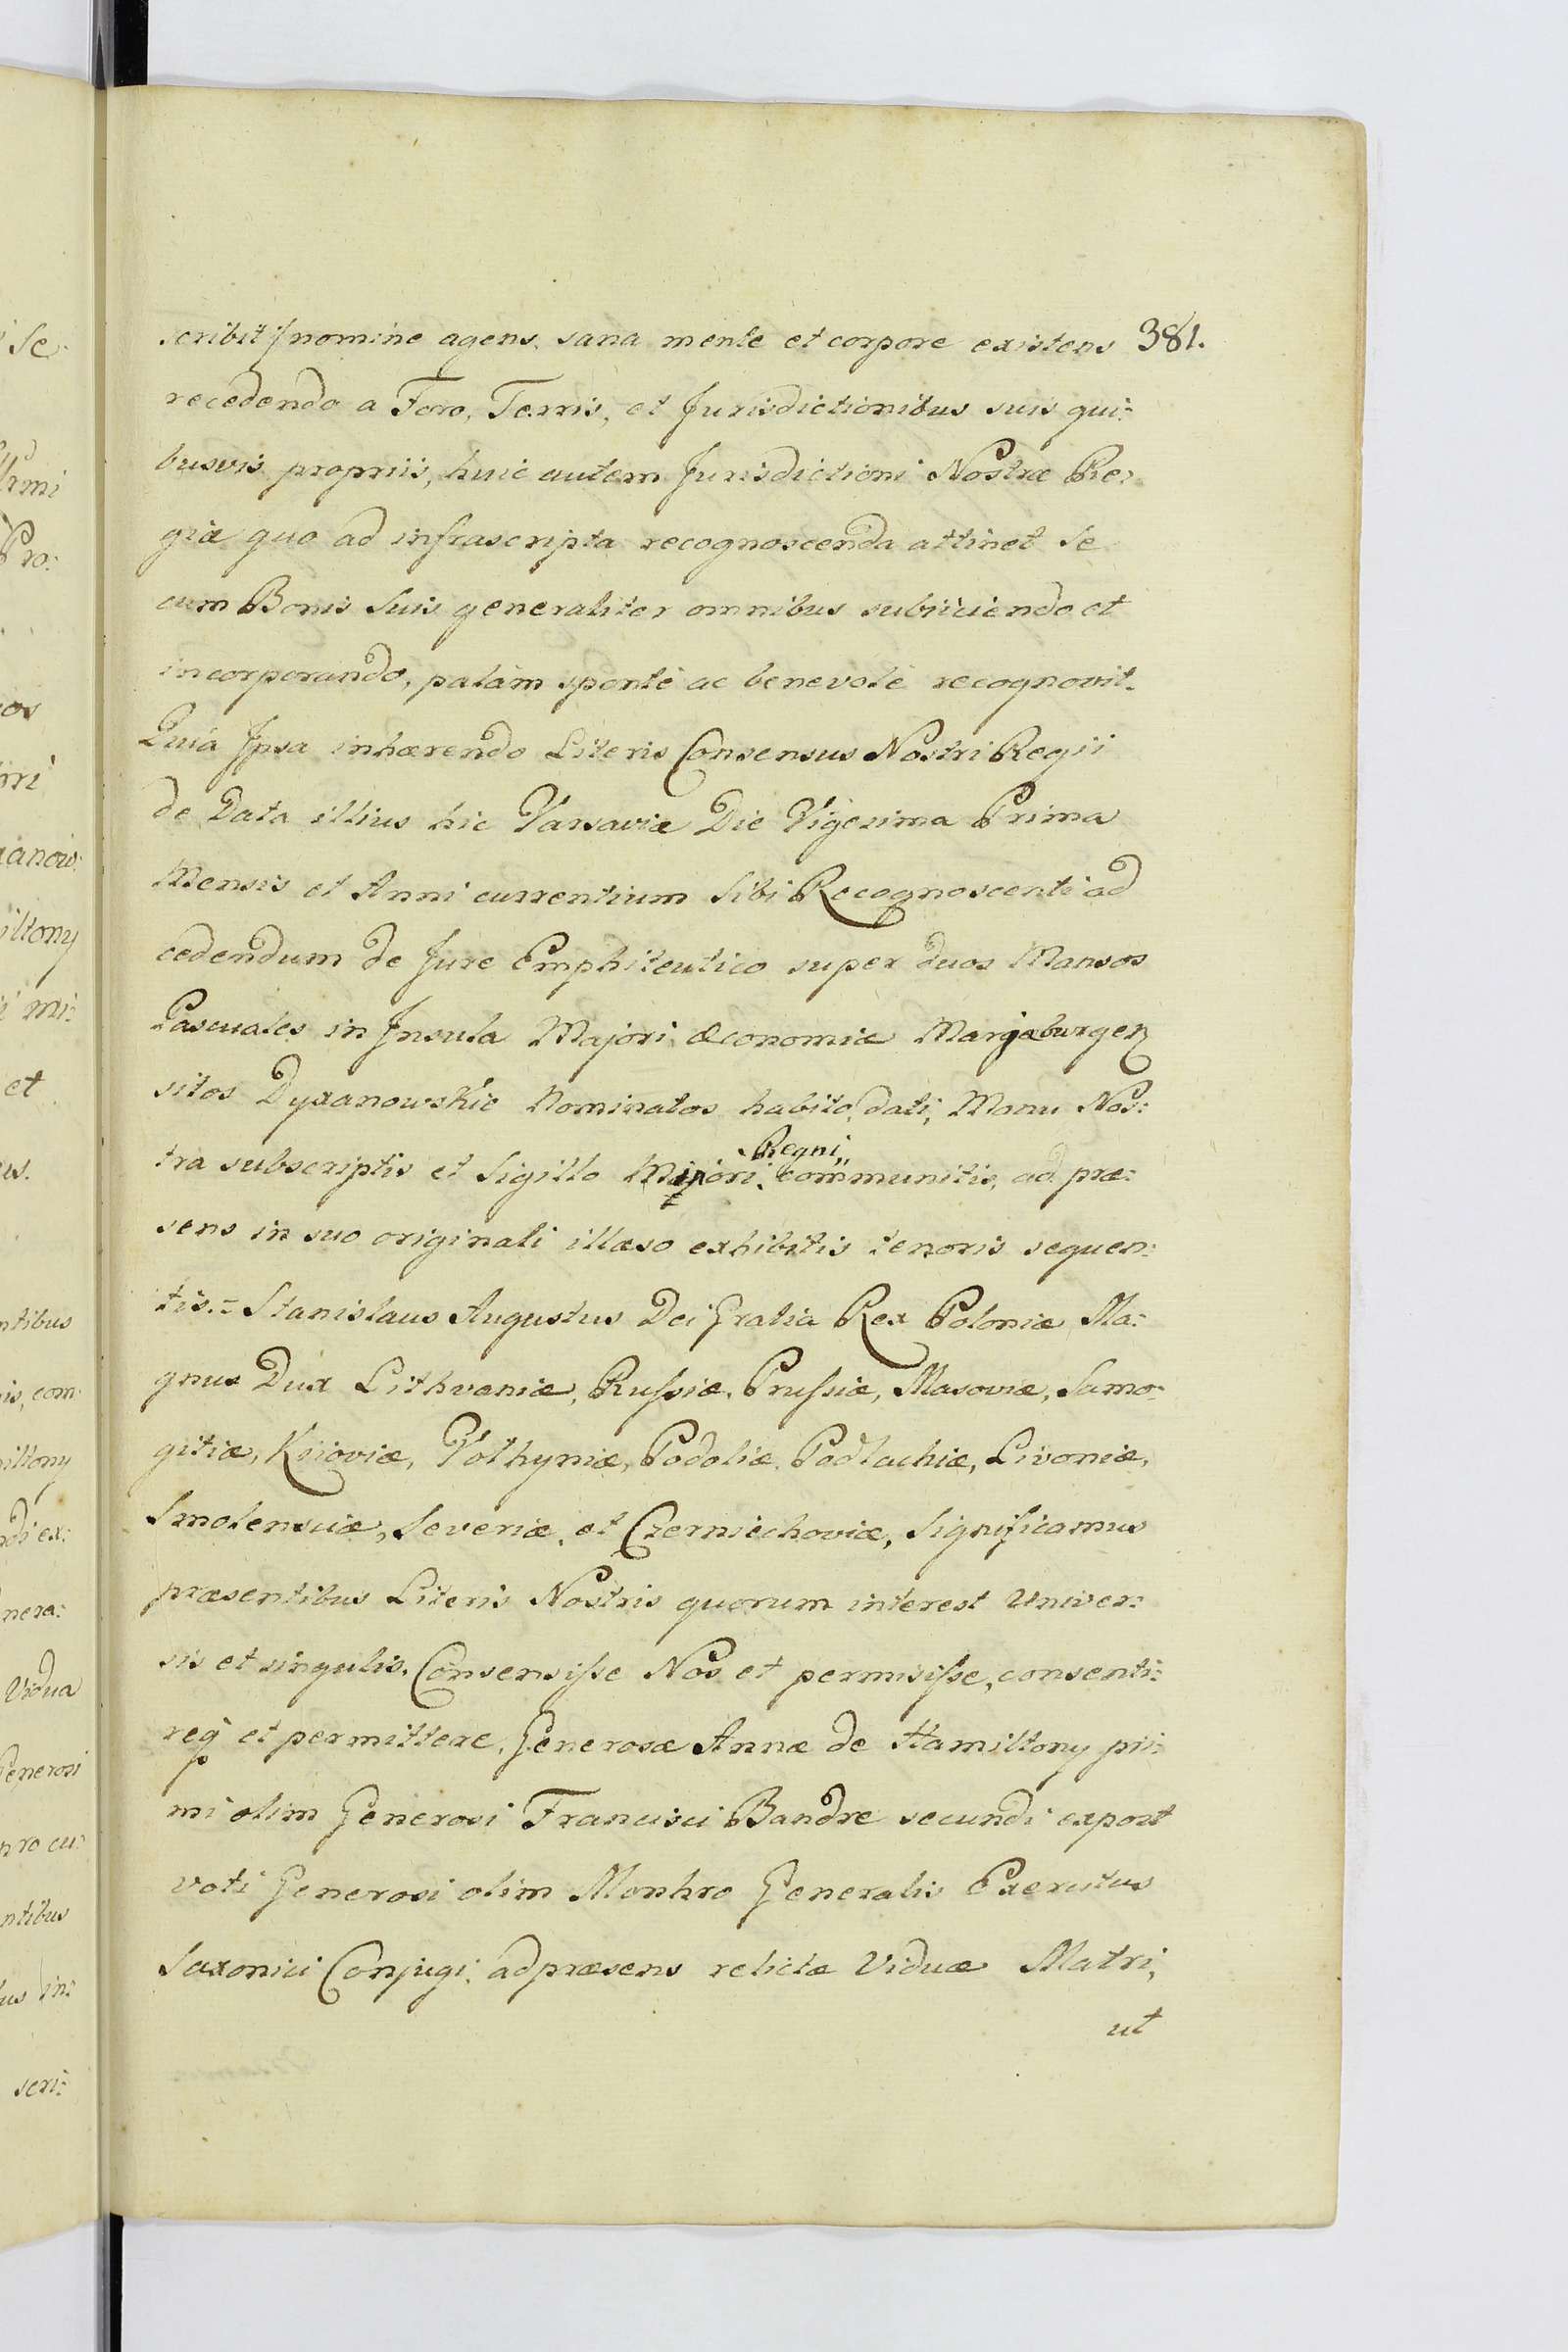 scribit/ nomine agens. sana mente et corpore existens 381.
recedendo a Foro, Terris, et Jurisdictionibus suis qui:
busvis propriis, huic autem Jurisdictioni Nostræ Re:
giæ quo ad infrascripta recognoscenda attinet Se
cum Bonis Suis generaliter omnibus subiiciendo et
incorporando, palàm spontè ac benevolè recognovit.
Quià Ipsa inhærendo Literis Consensus Nostri Regii
de Data illius hic Varsaviæ Die Vigesima Prima
Mensis et Anni currentium Sibi Recognoscenti ad
cedendum de Jure Emphiteutico super duos Mansos
Pascuales in Insula Majori Œconomiæ Marjæburgen
sitos Dyxanowskie Nominatos habito, dati, Manu Nos:
Regni
tra subscriptis et Sigillo communitis, ad præ:
sens in suo originali illæso exhibitis tenoris sequen:
tis.= Stanislaus Augustus Dei Gratia Rex Poloniæ, Ma:
gnus Dux Lithvaniæ, Rußiæ, Prußiæ, Masoviæ, Samo:
gitiæ, Kijoviæ, Volhyniæ, Podoliæ, Podlachiæ, Livoniæ,
Smolensciæ, Severiæ, et Czerniechoviæ, Significamus
præsentibus Literis Nostris quorum interest Univer:
sis et singulis. Consensiße Nos et permisiße, consenti:
req et permittere, Generosæ Annæ de Hamiltony pri:
mi olim Generosi Francisci Bandre secundi expost
voti Generosi olim Monhro Generalis Exercitus
Saxonici Conjugi, ad præsens relictæ Viduæ Matri,
ut
Se
Pro:
et
ntibus
com
nera:
Vidua
Generosi
ntibus
in:
scri: